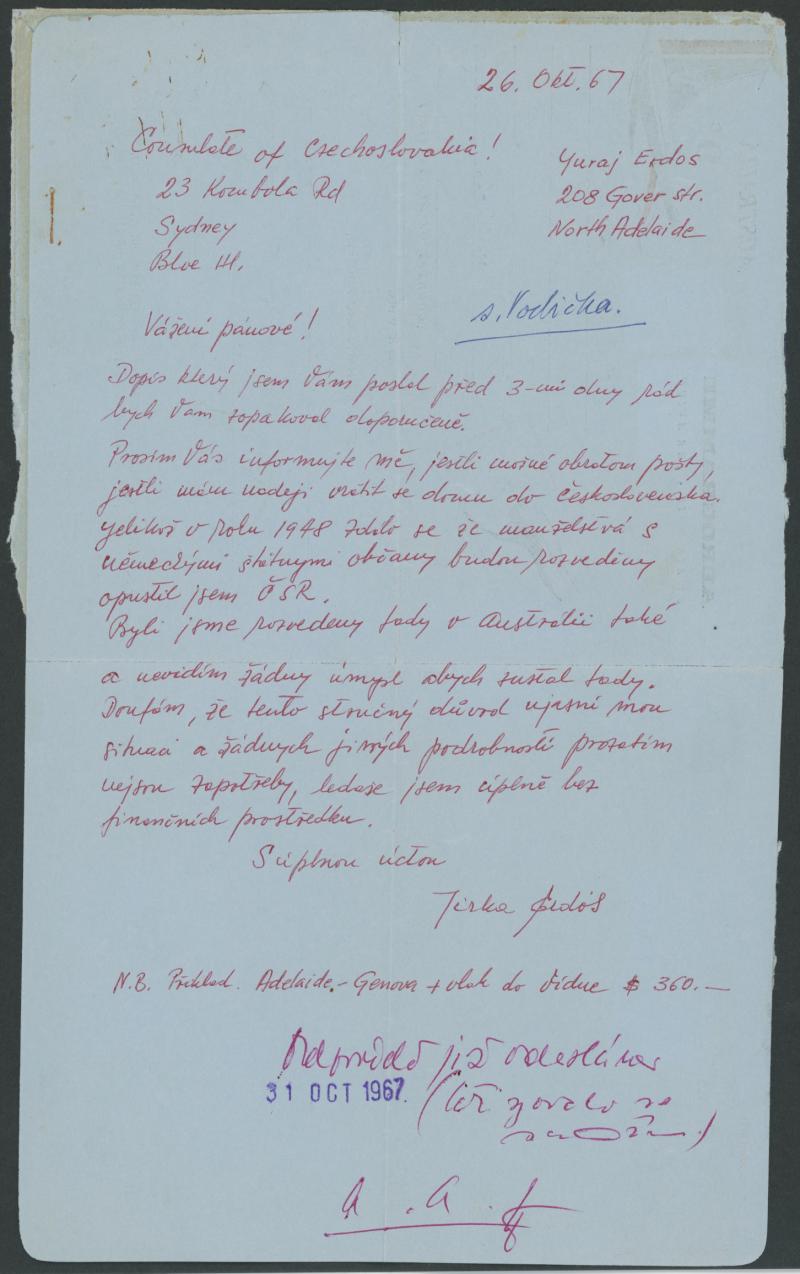 26. Okt. 67
Consulate of Czechoslovakia!
23 Kombola Rd
Sydney
Blve Hl.
Yuraj Erdos
208 Gover str.
North Adelaide
s. Vodička.
Vážení pánové!
Dopis který jsem Vám poslal před 3-mi dny rád
bych Vam zopakoval doporučeně.
Prosím Vás informujte mě, jestli možné obratom pošty,
jestli mám naději vrátit se domu do Československa.
Jelikož v roku 1948 zdalo se že manželstvá s
německými štátnymi občany budou rozvedeny
opustil jsem ČSR.
Byli jsme rozvedeny tady v Australii také
a nevidím žádny úmysl abych zustal tady.
Doufám, že tento stručný důvod ujasní mou
situaci a žádnych jiných podrobností prozatím
nejsou zapotřeby, ledaže jsem úplně bez
finančních prostředku.
S úplnou úctou
Jirka Erdös
N.B. Příklad. Adelaide.- Genova + vlak do Vídne $ 360.—
Odpověď již odeslána
31 OCT 1967.
se
a. a.